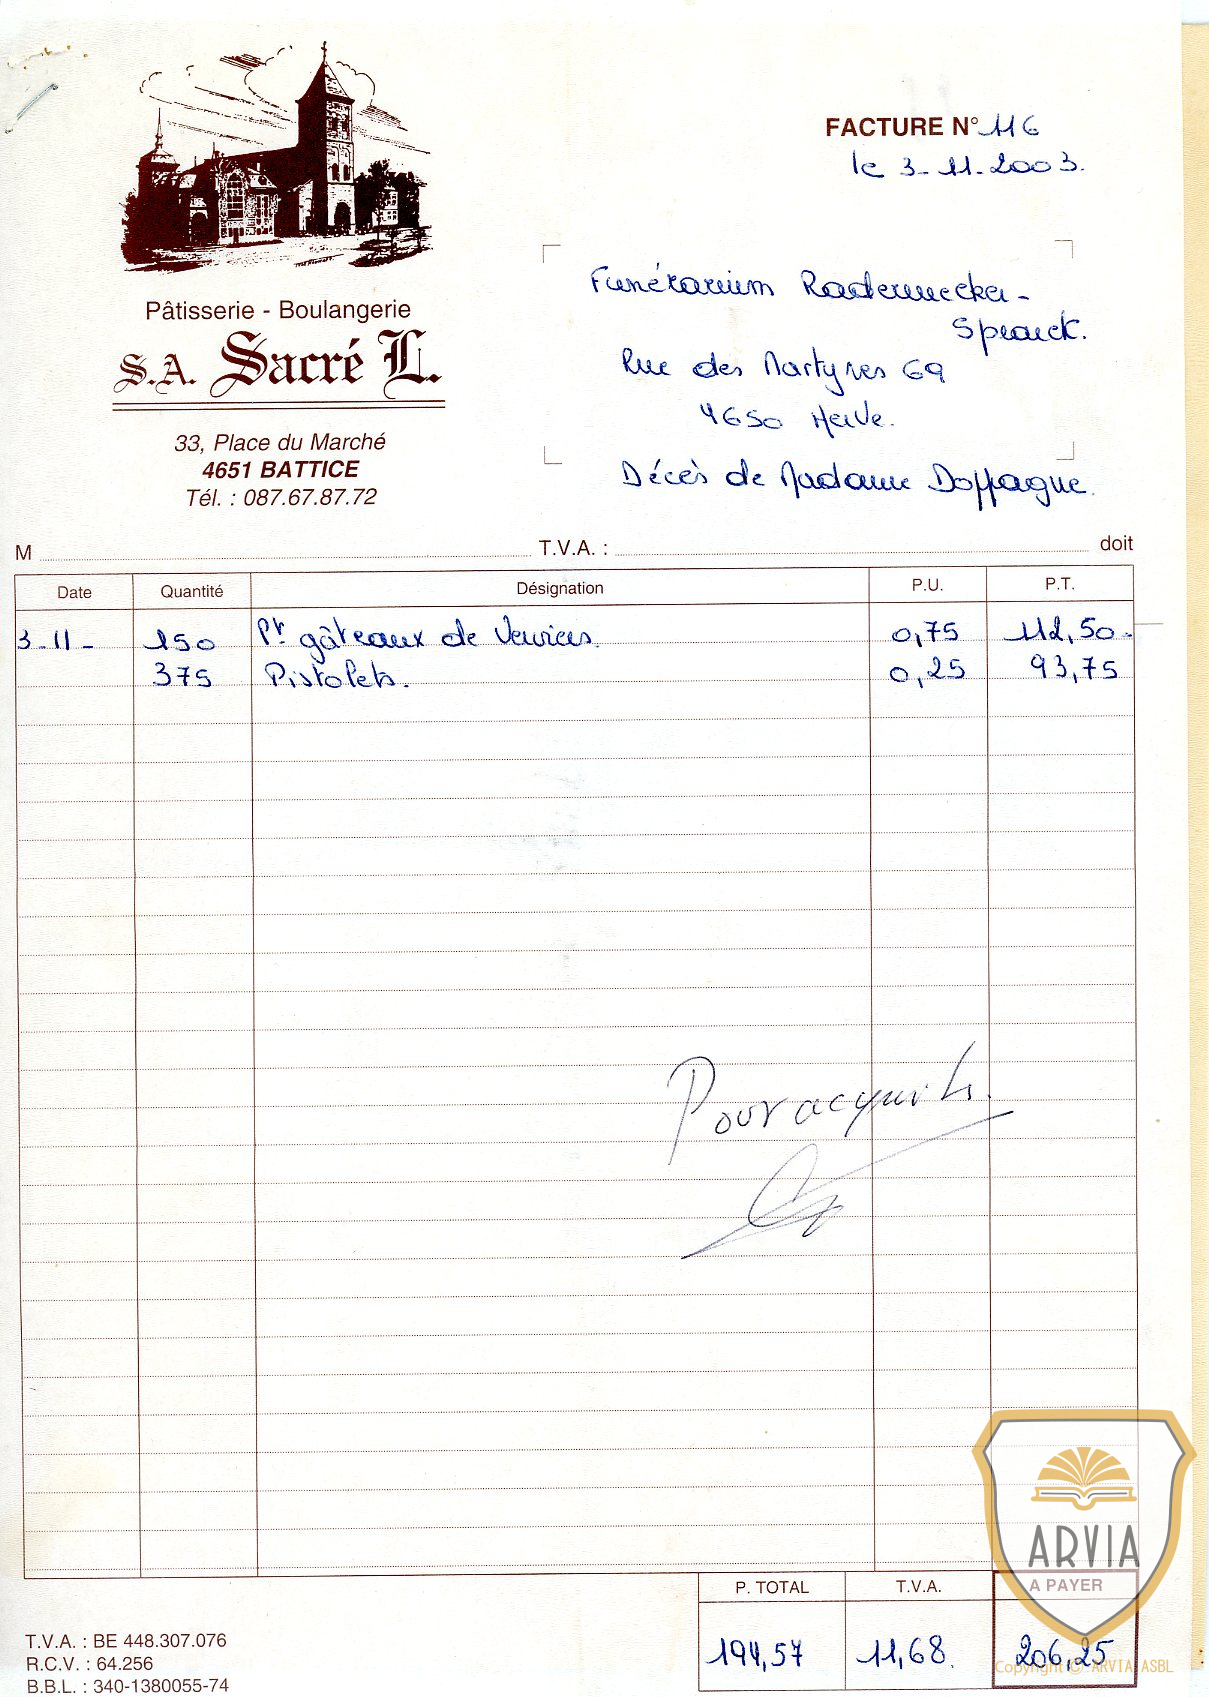 FACTURE N° 116
le 3-11-2003.
Pâtisserie - Boulangerie
S.A. Sacré L.
33, Place du Marché
4651 BATTICE
Tél. : 087.67.87.72
Funérarium Radermecker-
Sprouck.
Rue des Martyrs 69
4650 Herve.
Décès de Madame Doffagne.
M T.V.A. : doit
Date Quantité Désignation P.U. P.T.
3-11- 150 Pts gâteaux de Verviers. 0,75 112,50-
375 Pistolets. 0,25 93,75
Pour acquit
ARVIA
P. TOTAL T.V.A. A PAYER
194,57 11,68. 206,25
T.V.A. : BE 448.307.076
R.C.V. : 64.256
B.B.L. : 340-1380055-74
Copyright © ARVIA ASBL